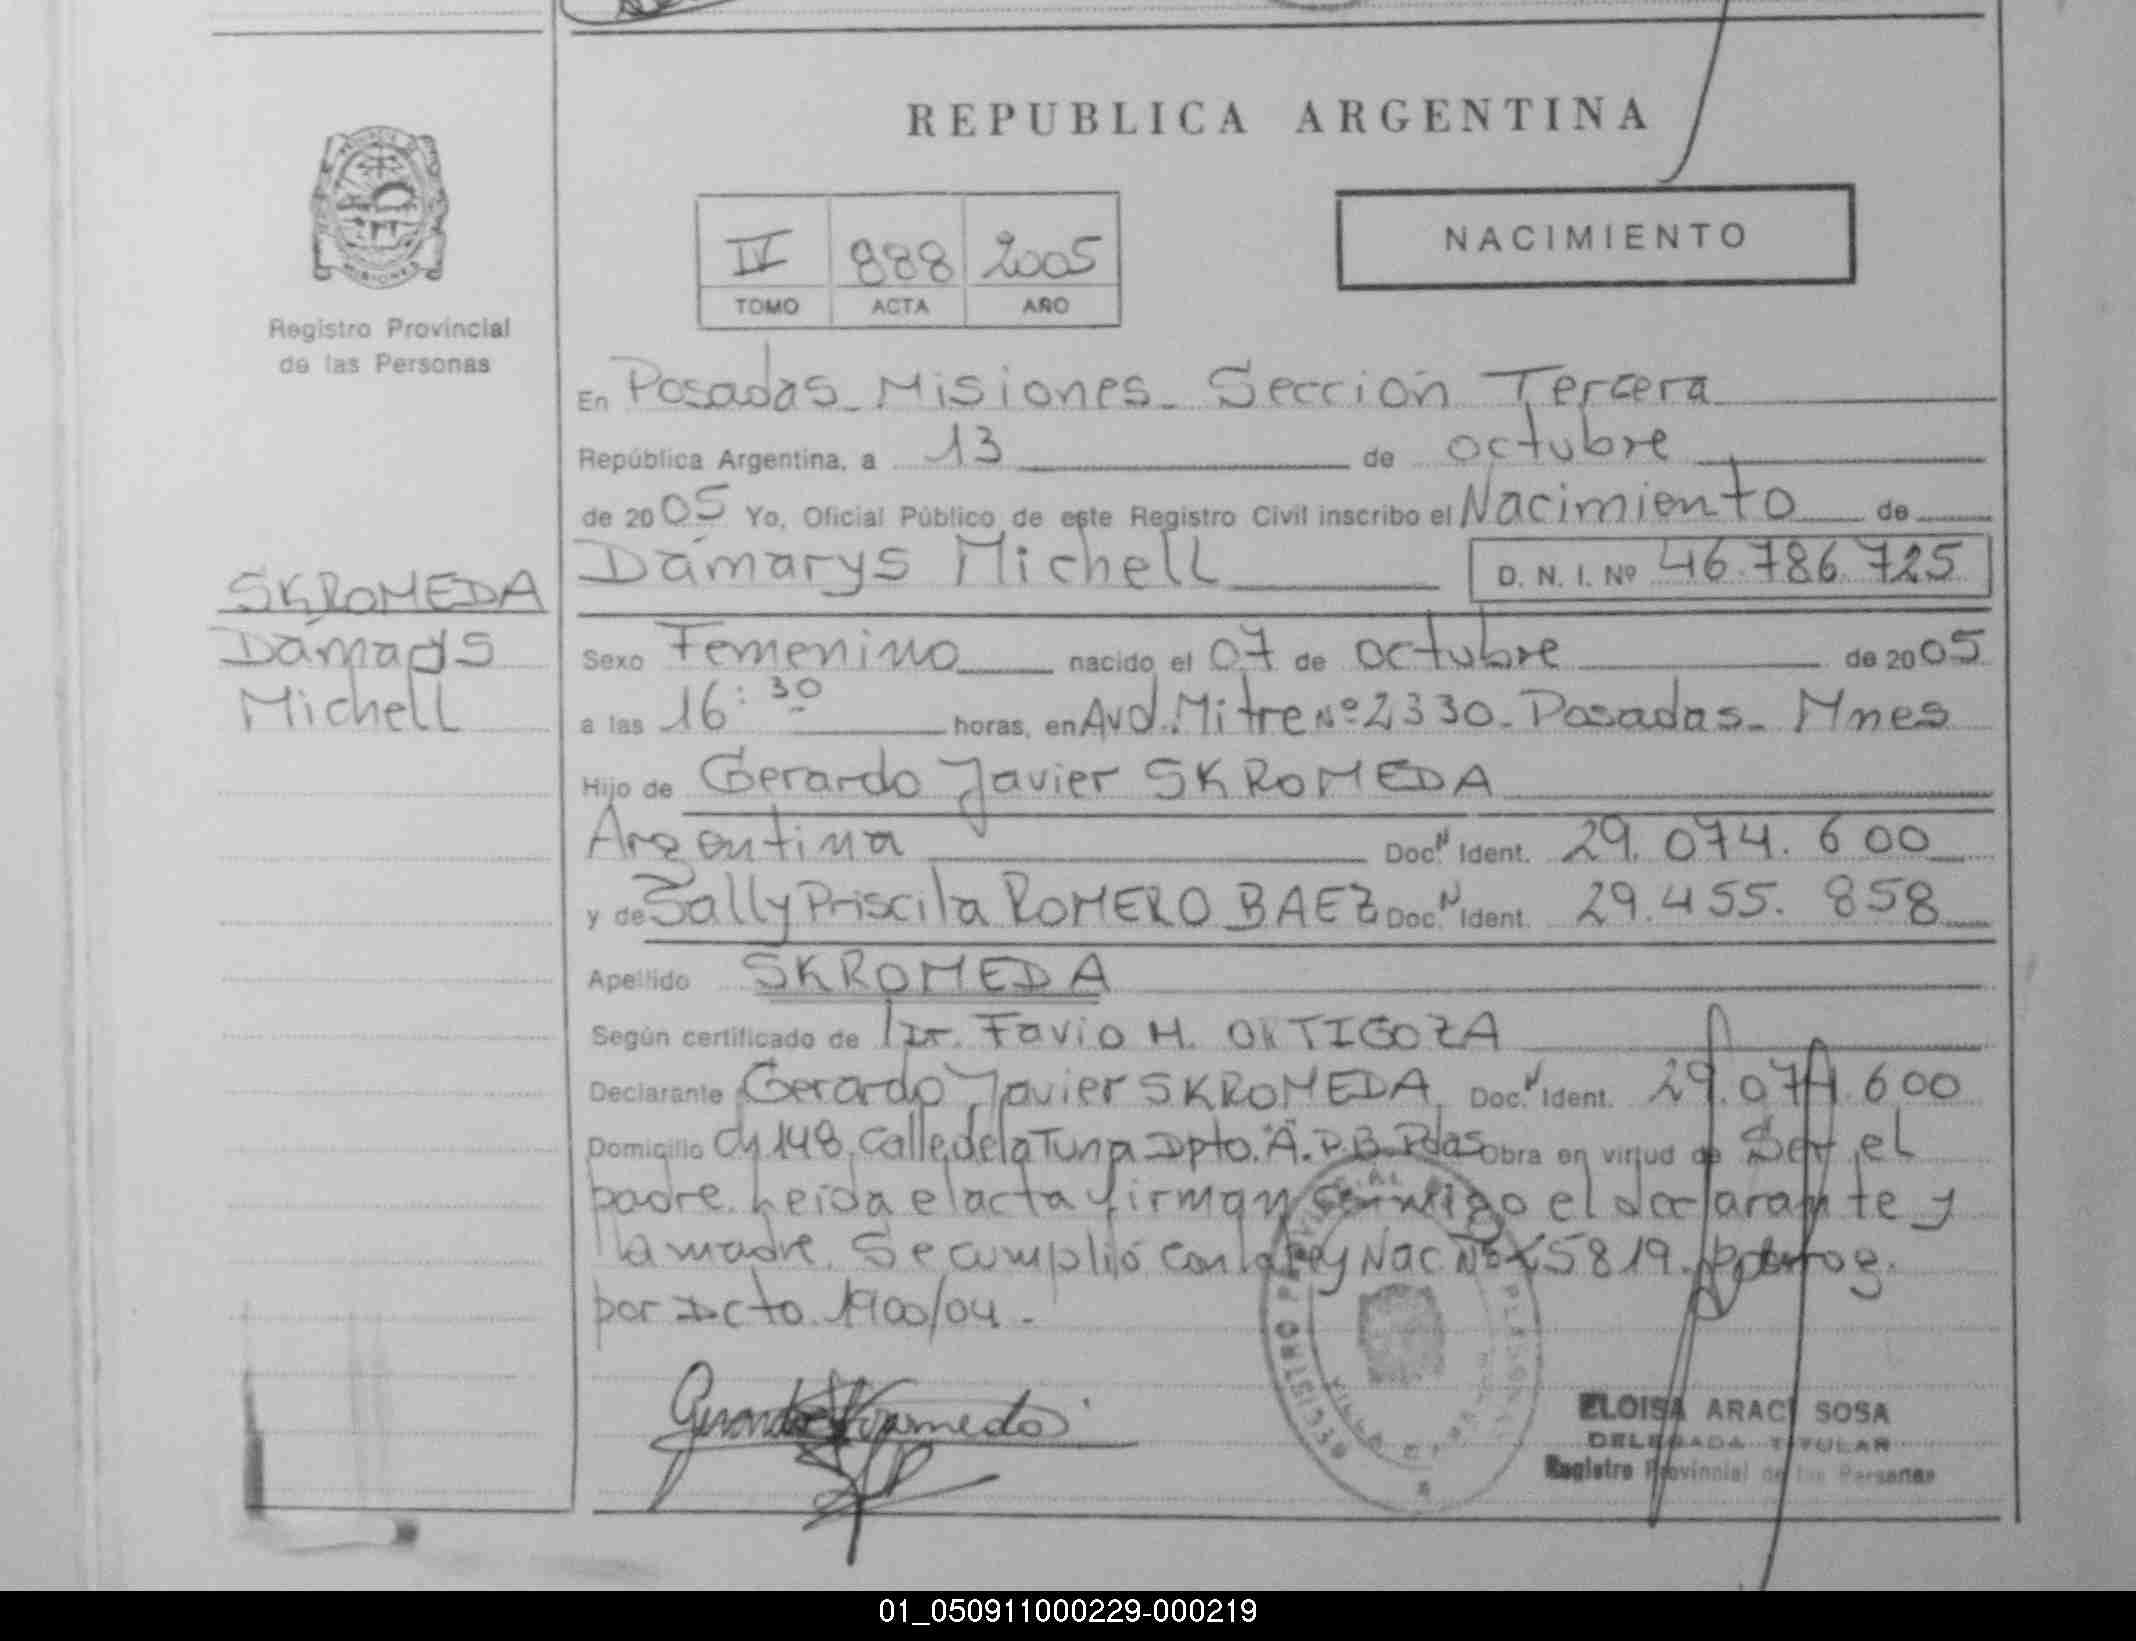 REPUBLICA ARGENTINA
NACIMIENTO
IV 888 2005
TOMO ACTA AÑO
MISIONES
Registro Provincial
de las Personas
En Posadas - Misiones - Sección Tercera
República Argentina, a 13 de octubre
de 2005 Yo, Oficial Público de este Registro Civil inscribo el Nacimiento de
Dámarys Michell D. N. I. Nº 46.786.725
SKROMEDA
Dámarys
Michell
Sexo Femenino nacido el 07 de octubre de 2005
a las 16:30 horas, en Avd. Mitre Nº 2330 - Posadas - Mnes
Hijo de Gerardo Javier SKROMEDA
Argentina Doc. N Ident. 29.074.600
y de Sally Priscila ROMERO BAEZ Doc. N Ident. 29.455.858
Apellido SKROMEDA
Según certificado de Dr. Favio H. ORTIGOZA
Declarante Gerardo Javier SKROMEDA Doc. N Ident. 29.074.600
Domicilio Ch 148, Calle de la Tuna Dpto. "A". P.B. Pdas Obra en virtud de Ser el
padre. Leida el acta firman conmigo el declarante y
la madre. Se cumplió con la Ley Nac Nº 25819. prorrog.
por Dcto. 1900/04 -
REGISTRO PROVINCIAL
ELOISA ARACI SOSA
DELEGADA TITULAR
Registro Provincial de las Personas
01_050911000229-000219